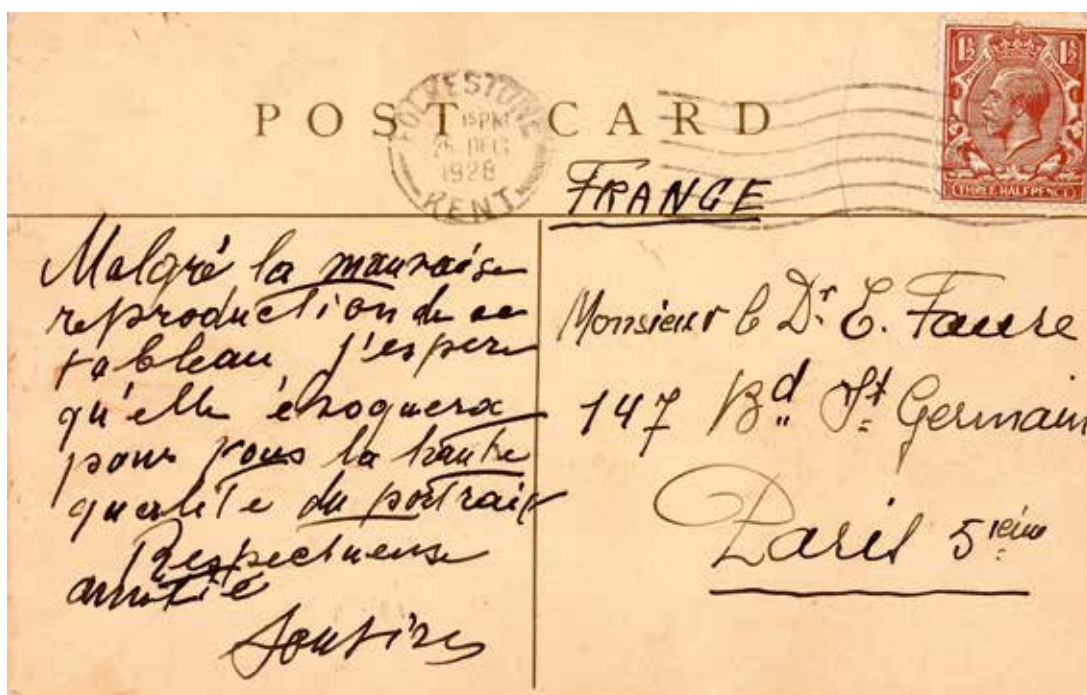 POST CARD
FOLKESTONE
15 PM
26 DEC
1928
KENT
1½ 1½
THREE HALFPENCE
FRANCE
Malgré la mauvaise
reproduction de ce
tableau, j'espere
qu'elle évoquera
pour vous la haute
qualite du portrait
Respectueuse
amitié
Soutine
Monsieur le Dr. E. Faure
147 Bd St Germain
Paris 5ième